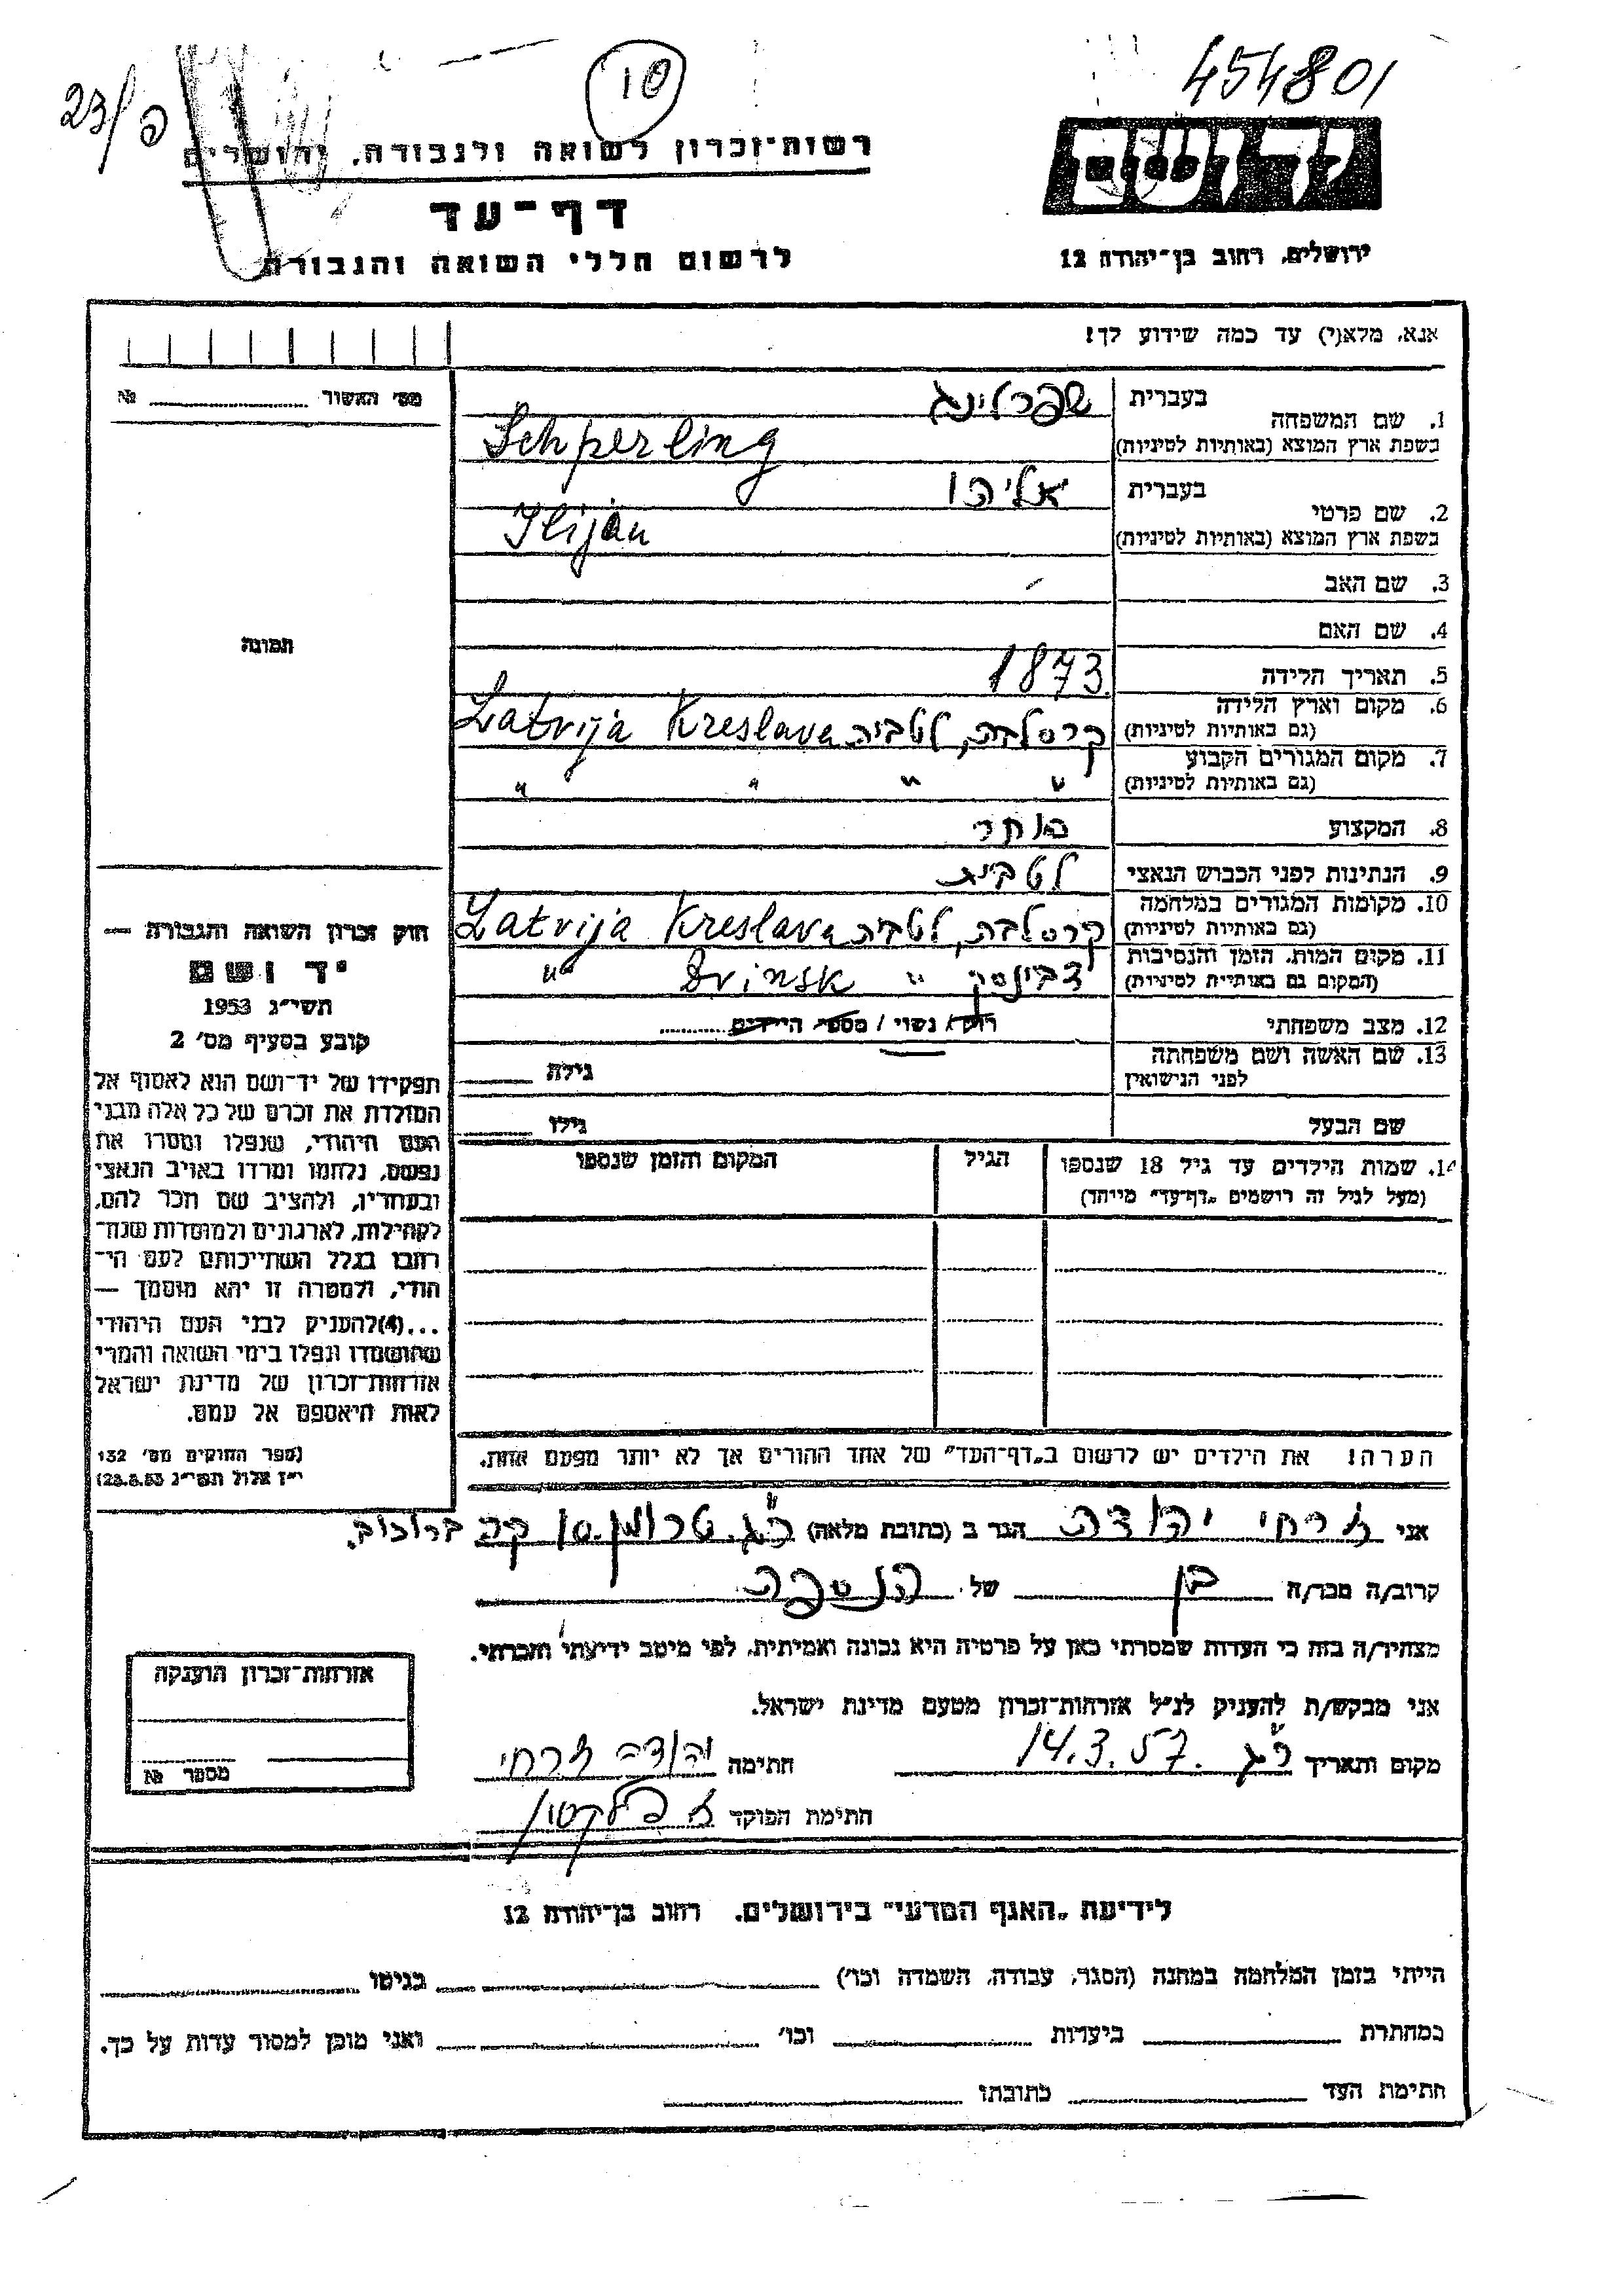 454801
10
23/פ
יד ושם
ירושלים, רחוב בן־יהודה 12
רשות־זכרון לשואה ולגבורה, ירושלים
דף־עד
לרשום חללי השואה והגבורה
אנא, מלא(י) עד כמה שידוע לך!
מס׳ האשור № 
1. שם המשפחה
בעברית שפרלינג
בשפת ארץ המוצא (באותיות לטיניות) Schperling
2. שם פרטי
בעברית אליהו
בשפת ארץ המוצא (באותיות לטיניות) Ilijau
3. שם האב -
4. שם האם
5. תאריך הלידה 1873
6. מקום וארץ הלידה
(גם באותיות לטיניות) קרסלבה, לטביה Latvija Kreslava
7. מקום המגורים הקבוע
(גם באותיות לטיניות) " " " "
8. המקצוע סוחר
9. הנתינות לפני הכבוש הנאצי לטבית
10. מקומות המגורים במלחמה
(גם באותיות לטיניות) קרסלבה, לטביה Latvija Kreslava
11. מקום המות, הזמן והנסיבות
(המקום גם באותיות לטיניות) דבינסק " Dvinsk "
12. מצב משפחתי רווק/ נשוי / מספר הילדים
13. שם האשה ושם משפחתה
לפני הנישואין גילה
שם הבעל גילו
14. שמות הילדים עד גיל 18 שנספו
(מעל לגיל זה רושמים „דף־עד" מיוחד)
הגיל
המקום והזמן שנספו
תמונה
חוק זכרון השואה והגבורה —
יד ושם
תשי״ג 1953
קובע בסעיף מס׳ 2
תפקידו של יד־ושם הוא לאסוף אל
המולדת את זכרם של כל אלה מבני
העם היהודי, שנפלו ומסרו את
נפשם, נלחמו ומרדו באויב הנאצי
ובעוזריו, ולהציב שם וזכר להם,
לקהילות, לארגונים ולמוסדות שנח־
רבו בגלל השתייכותם לעם הי־
הודי, ולמטרה זו יהא מוסמך —
...(4) להעניק לבני העם היהודי
שהושמדו ונפלו בימי השואה והמרי
אזרחות־זכרון של מדינת ישראל
לאות היאספם אל עמם.
(ספר החוקים מס׳ 132
י״ז אלול תשי״ג 28.8.53)
הערה! את הילדים יש לרשום ב„דף־העד" של אחד ההורים אך לא יותר מפעם אחת.
אני זרחי יהודה הגר ב (כתובת מלאה) ר"ג. טרומן 10 קר׳ ברוכוב.
קרוב/ה מכר/ה בן של הנספה
מצהיר/ה בזה כי העדות שמסרתי כאן על פרטיה היא נכונה ואמיתית, לפי מיטב ידיעתי והכרתי.
אני מבקש/ת להעניק לנ״ל אזרחות־זכרון מטעם מדינת ישראל.
מקום ותאריך ר"ג 14.3.57 חתימה יהודה זרחי
חתימת הפוקד
אזרחות־זכרון הוענקה
מספר №
לידיעת „האגף המדעי" בירושלים, רחוב בן־יהודה 12
הייתי בזמן המלחמה במחנה (הסגר, עבודה, השמדה וכו׳) בגיטו
במחתרת ביערות וכו׳ ואני מוכן למסור עדות על כך.
חתימת העד כתובתו